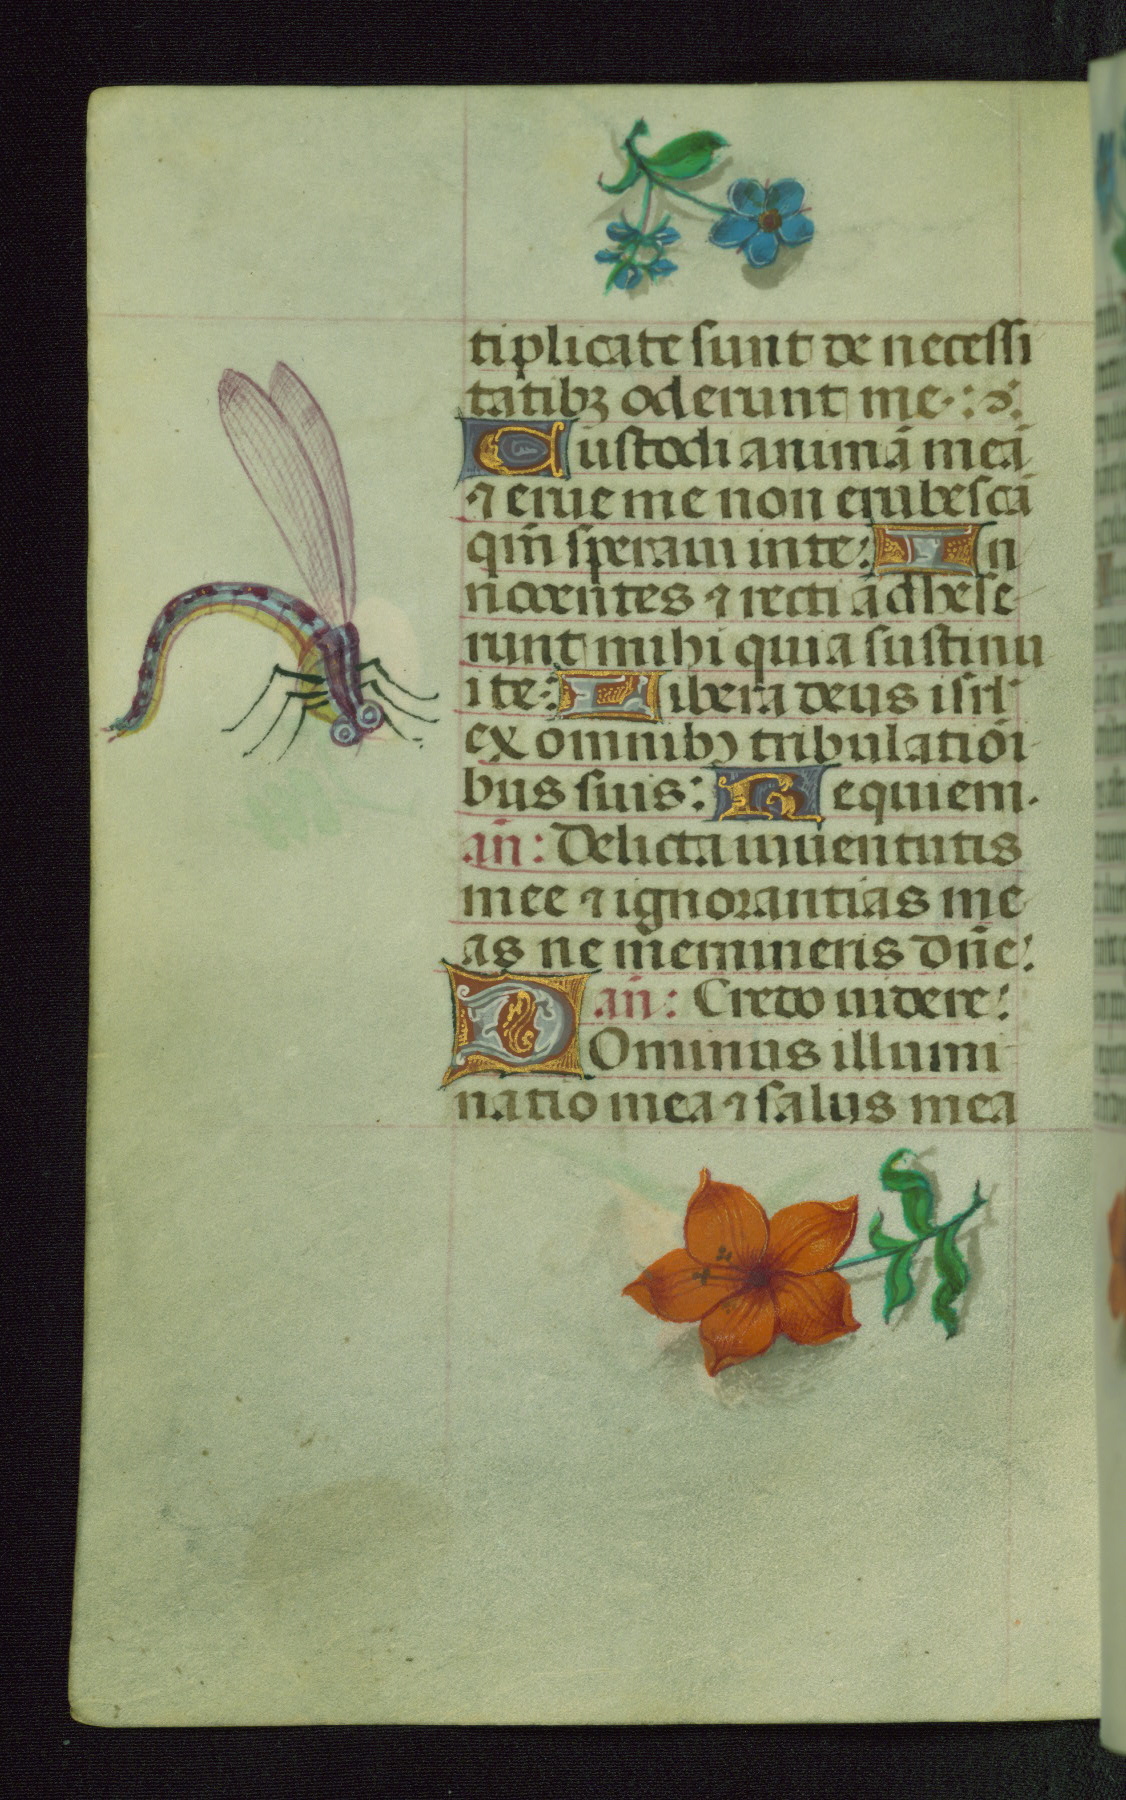 tiplicate sunt de necessi
tatibꝫ oderunt me·:
Custodi animā meā
⁊ erue me non erubescā
qm̄ speraui in te: In
nocentes ⁊ recti adhese
runt mihi quia sustinu
i te: Libera deus isrl̄
ex omnibꝫ tribulatiōi
bus suis: Requiem·
an̄: Delicta iuuentutis
mee ⁊ ignorantias me
as ne memineris dn̄e:
an̄: Credo uidere:
DOminus illumi
natio mea ⁊ salus mea